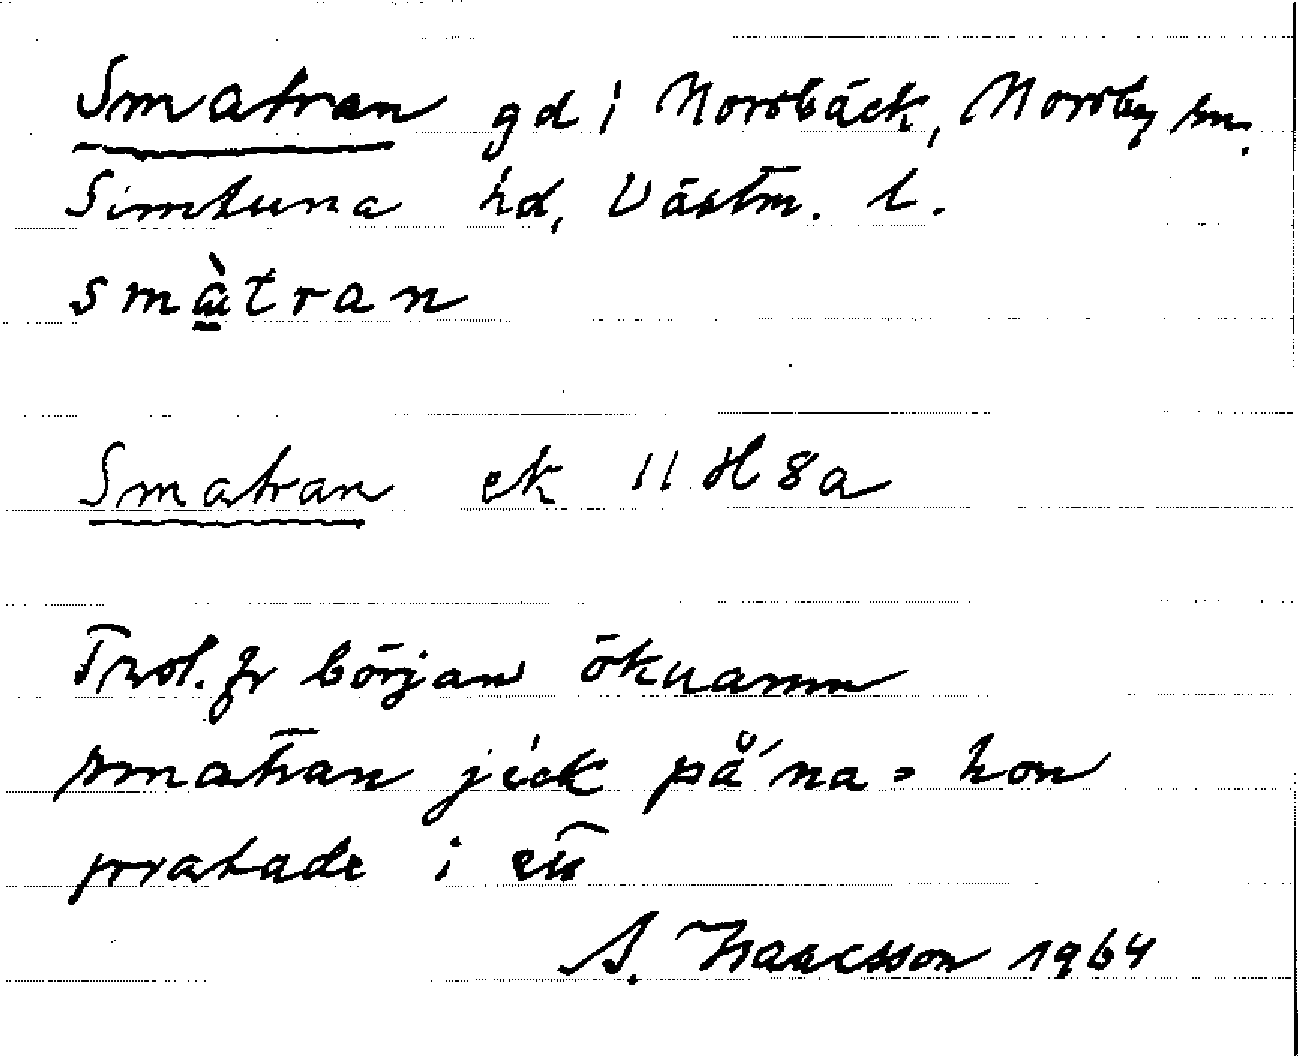 Smatran gd i Norrbäck, Norrby sn.
Simtuna hd, Västm. l.
smàtran
Smatran ek 11 H 8a
Trol. fr början öknamn
smatran jick på´na = hon
pratade i ett
A. Isaacsson 1964